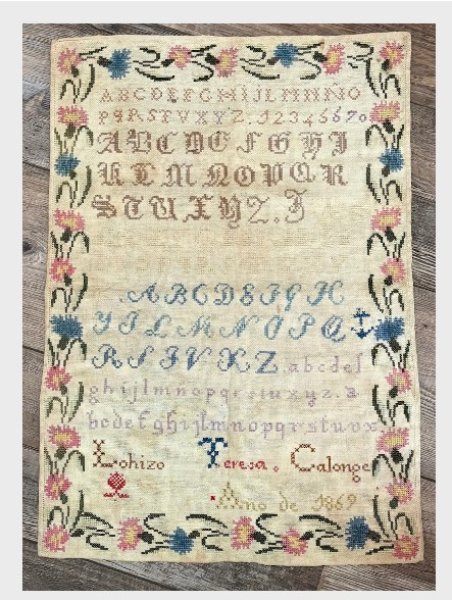 ABCDEFGHIJLMNÑO
PQRSTVXYZ.1234567o
ABCDEFGHI
KLMNOPQR
STUXYZ.J
ABCDEFGH
YJLMNOPQ
RSTVXZ.abcdef
ghijlmnopqrstuxyz.a
bcdefghijlmnopqrstuvx
Lohizo Teresa. Calonge
Año de 1869